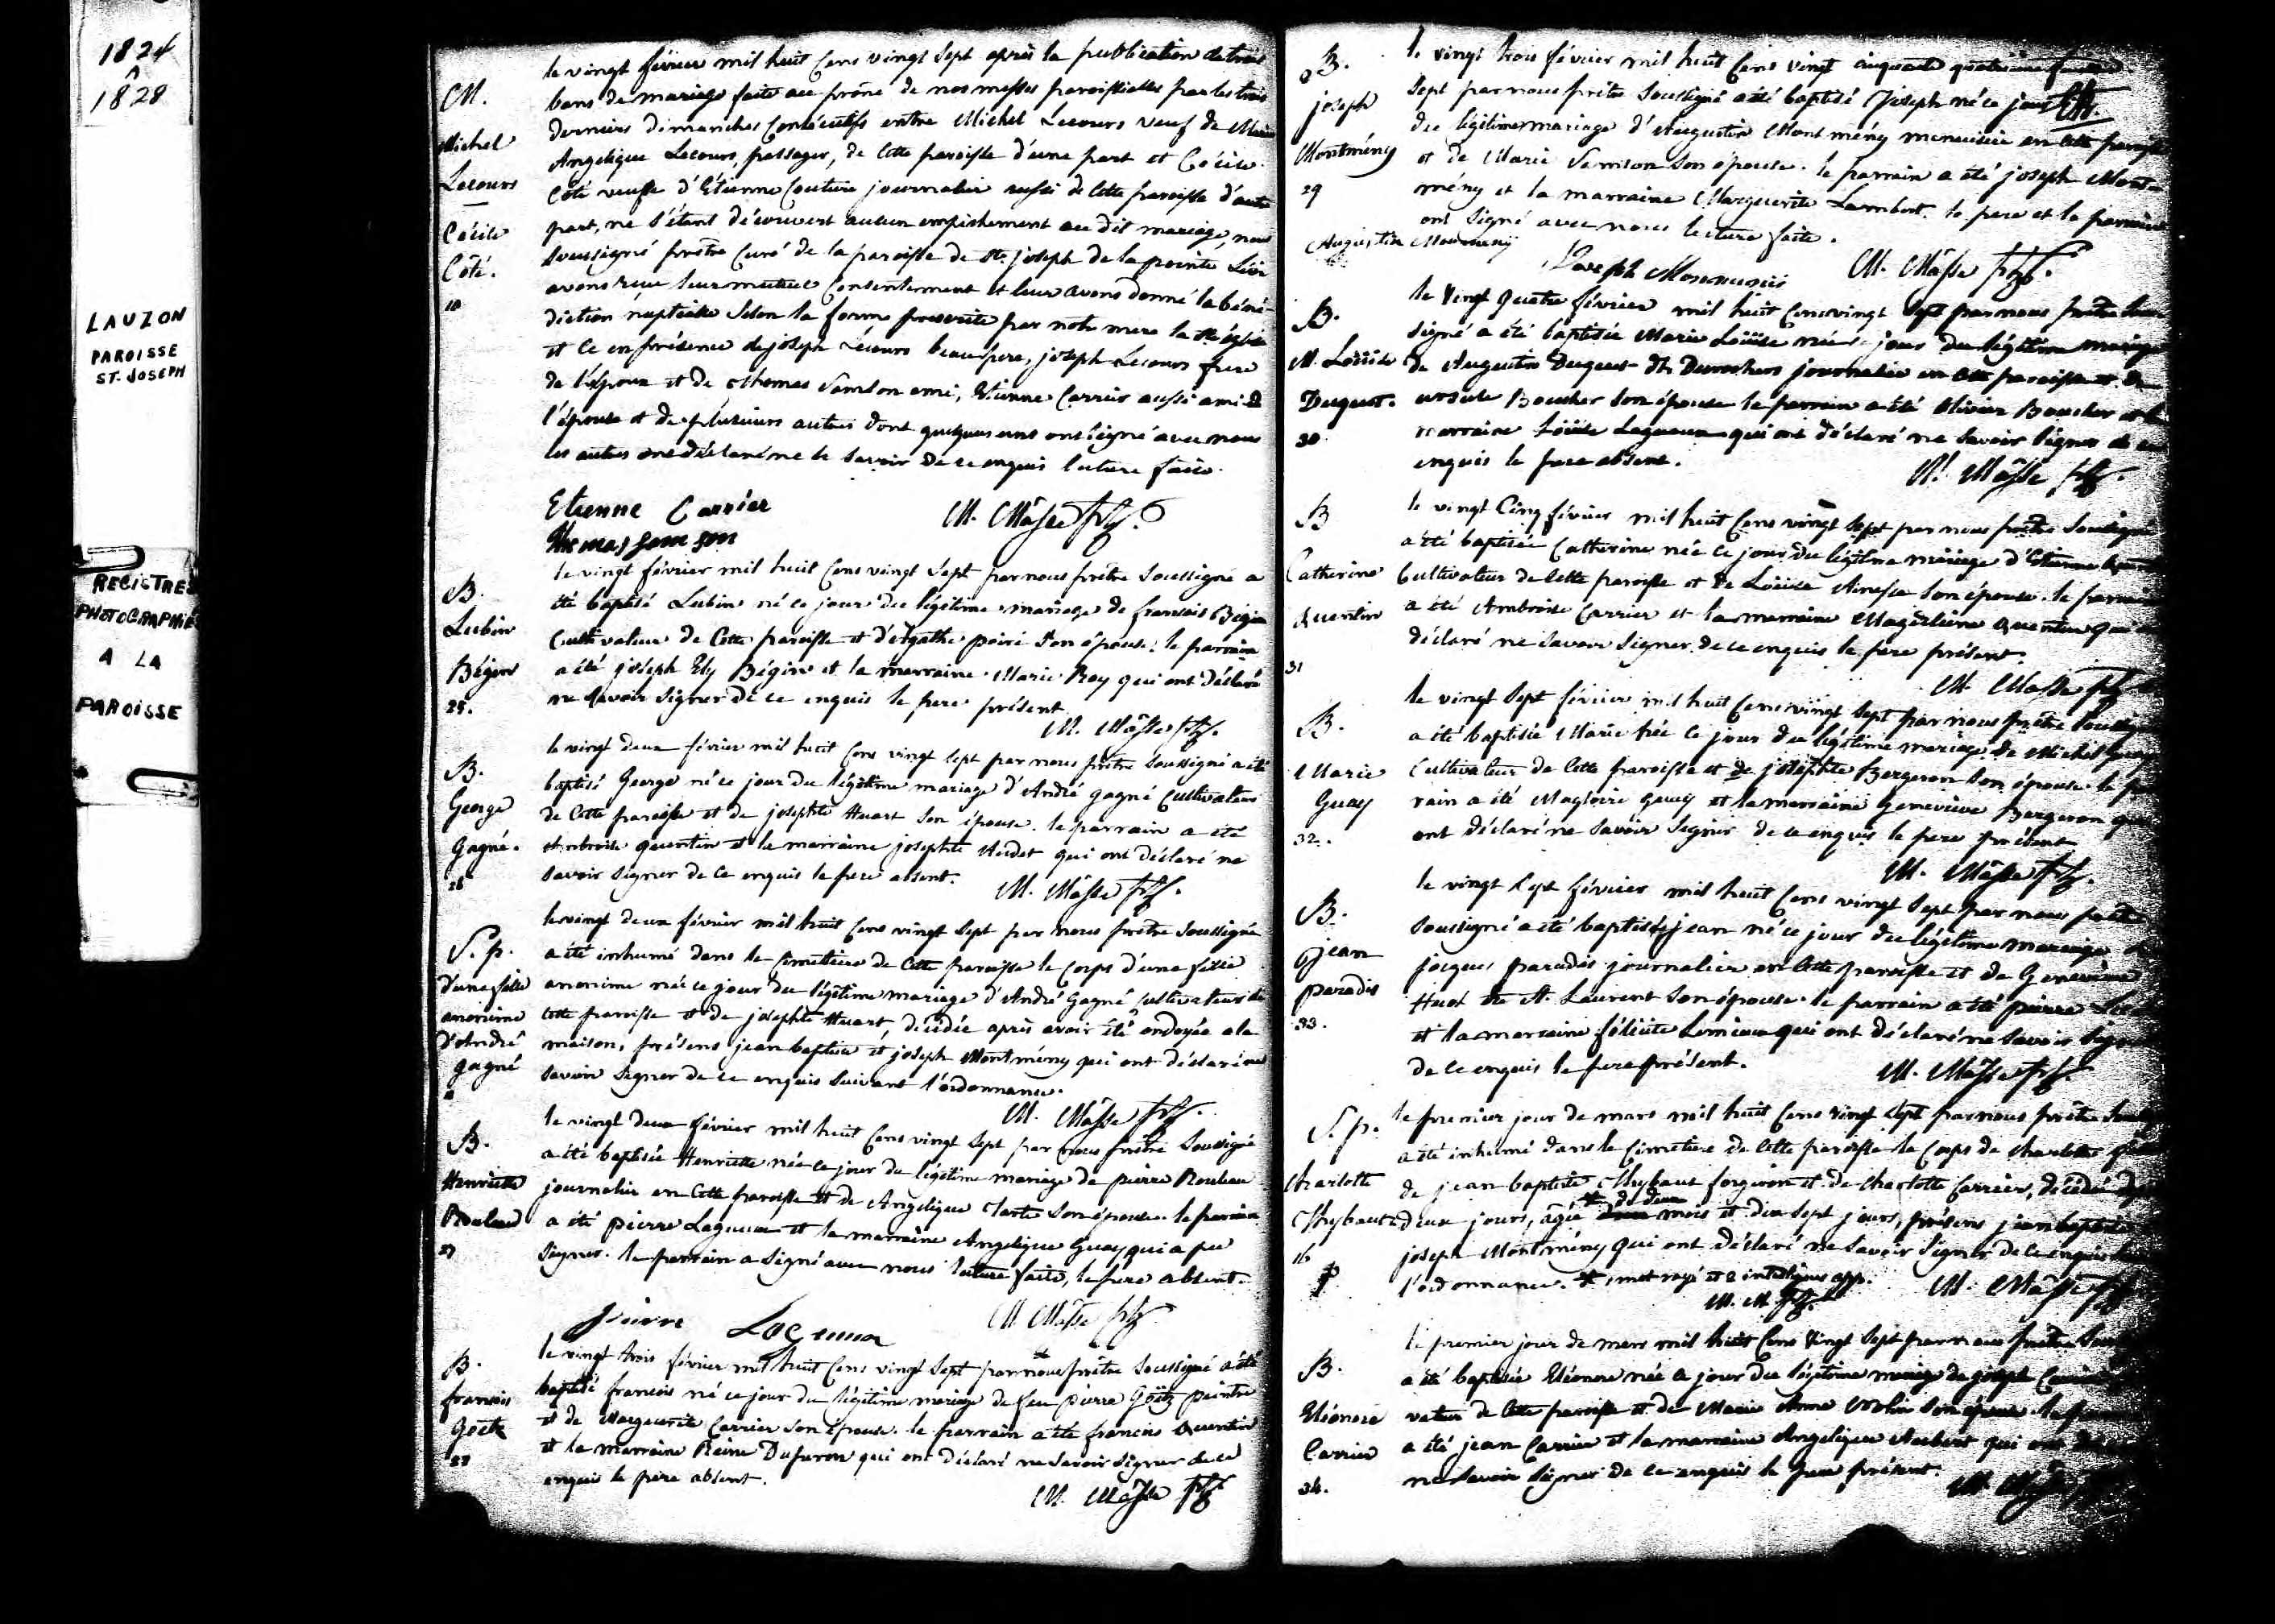 1824
à
1828
LAUZON
PAROISSE
ST. JOSEPH
REGISTRES
PHOTOGRAPHIÉS
A LA
PAROISSE
M.
Michel
Lecours
Cécile
Côté.
10
le vingt février mil huit Cens vingt Sept après la publication de trois
bans de mariage faite au prône de nos messes paroissialles par les trois
derniers dimanches Consécutifs entre Michel Lecours veuf de Marie
Angelique Lecours, passager, de Cette paroisse d'une part et Cécile
Côté veuffe d'Etienne Couture journalier aussi de Cette paroisse d'autre
part, ne s'étant découvert aucun empêchement au dit mariage, nous
Soussigné prêtre Curé de la paroisse de St. joseph de la pointe Lévi
avons reçu leur mutuel Consentement et leur avons donné la béné-
diction nuptialle Selon la forme prescrite par notre mere la Ste église
et Ce en présence de joseph Lecours beaupere, joseph Lecours frere
de l'époux et de thomas Samson ami, Etienne Carrier aussi ami de
l'épouse et de plusieurs autres dont quelques uns ont Signé avec nous
les autres ont déclaré ne le Savoir de ce enquis lecture faite.
Etienne Carrier M. Mâsse ptre.
Thomas Samson
B.
Lubin
Bégin
25.
le vingt février mil huit Cens vingt Sept par nous prêtre Soussigné a
été baptisé Lubin né ce jour du légitime mariage de francois Bégin
Cultivateur de Cette paroisse et d'Agathe poiré Son épouse. le parrain
a été joseph Ely Bégin et la marraine Marie Roy qui ont déclaré
ne Savoir Signer de ce enquis le pere présent
M. Mâsse ptre.
B.
George
Gagné.
26
le vingt deux février mil huit Cens vingt Sept par nous prêtre Soussigné a été
baptisé George né ce jour du légitime mariage d'André gagné Cultivateur
de Cette paroisse et de josephte Huart Son épouse. le parrain a été
Ambroise quentin et la marraine josephte Audet qui ont déclaré ne
Savoir Signer de Ce enquis le pere absent.
M. Mâsse ptre.
S. p.
d'une fille
anonime
d'André
gagné
le vingt deux février mil huit Cens vingt Sept par nous prêtre Soussigné
a été inhumé dans le Cimetiere de Cette paroisse le Corps d'une fille
anonime née ce jour du légitime mariage d'André Gagné Cultivateur de
Cette paroisse et de josephte Huart, decédée après avoir été ondoyée a la
maison, présens jean baptiste et joseph Montmény qui ont déclaré ne
Savoir Signer de ce enquis Suivant l'ordonnance.
M. Mâsse ptre.
B.
Henriette
Rouleau
27
le vingt deux février mil huit Cens vingt Sept par nous prêtre Soussigné
a été baptisée Henriette née ce jour du légitime mariage de pierre Rouleau
journalier en Cette paroisse et de Angelique Son épouse. le parrain
a été pierre Lagueux et la marraine Angelique Guay qui a pu
Signer. le parrain a Signé avec nous lecture faite, le pere absent.
M. Mâsse ptre
B.
francois
Goëtz
28
le vingt trois février mil huit Cens vingt Sept par nous prêtre Soussigné a été
baptisé francois né ce jour du légitime mariage de feu pierre Goëtz peintre
et de Marguerite Carrier Son épouse. le parrain a été francois Quentin
et la marraine Reine Duperon qui ont déclaré ne Savoir Signer de ce
enquis le père absent.
M. Mâsse ptre
B.
joseph
Montmény
29
le vingt trois février mil huit Cens vingt
Sept par nous prêtre Soussigné a été baptisé joseph né ce jour
du légitime mariage d'Augustin Montmény menuisier en Cette paroisse
et de Marie Samson Son épouse. le parrain a été joseph Mont-
mény et la marraine Marguerite Lambert. le pere et le parrain
ont Signé avec nous lecture faite.
Augustin
M. Mâsse ptre.
B.
M. Loüise
Duquet.
30
le Vingt quatre février mil huit Cens vingt Sept par nous prêtre Sous
signé a été baptisée Marie Loüise née ce jour du légitime mariage
de Augustin Duquet dt. Desrochers journalier en Cette paroisse et de
ursule Boucher Son épouse le parrain a été Olivier Boucher et la
marraine Loüise Lagueux qui ont déclaré ne Savoir Signer de ce
enquis le pere absent.
M. Mâsse ptre.
B
Catherine
Quentin
31
le vingt Cinq février mil huit Cens vingt Sept par nous prêtre Soussigné
a été baptisée Catherine née Ce jour du légitime mariage d'Etienne
Cultivateur de Cette paroisse et de Loüise Son épouse. le parrain
a été Ambroise Carrier et la marraine Magdeleine Quentin qui ont
déclaré ne Savoir Signer de ce enquis le pere présent.
M. Mâsse ptre
B.
Marie
Guay
32.
le vingt Sept février mil huit Cens vingt Sept par nous prêtre Soussigné
a été baptisée Marie née Ce jour du légitime mariage de Michel Guay
Cultivateur de Cette paroisse et de josephte Bergeron Son épouse. le par
rain a été Magloire guay et la marraine Geneviève Bergeron qui
ont déclaré ne Savoir Signer de ce enquis le pere présent
M. Mâsse ptre.
B.
jean
paradis
33.
le vingt Sept février mil huit Cens vingt Sept par nous prêtre
Soussigné a été baptisé jean né ce jour du légitime mariage de
jacques paradis journalier en Cette paroisse et de Genevieve
Huot dte St. Laurent Son épouse. le parrain a été pierre
et la marraine félicite Lemieux qui ont déclaré ne Savoir Signer
de Ce enquis le pere présent.
M. Mâsse ptre.
S. p.
Charlotte
Thybaut
16
le premier jour de mars mil huit Cens vingt Sept par nous prêtre
a été inhumé dans le Cimetiere de Cette paroisse le Corps de Charlotte
de jean baptiste Thybaut forgeron et de Charlotte Carrier, décédée
deux jours, agée de deux mois et dix Sept jours, présens jean baptiste
joseph Montmény qui ont déclaré ne Savoir Signer de Ce enquis
l'ordonnance. mot rayé et 2 interlignes app.
M. M. ptre. M. Mâsse ptre
B.
Eléonore
Carrier
34.
le premier jour de mars mil huit Cens Vingt Sept par nous prêtre
a été baptisée Eléonore née Ce jour du légitime mariage de joseph
vateur de Cette paroisse et de Marie Anne Son épouse. le parrain
a été jean Carrier et la marraine Angelique Aubert qui ont
ne Savoir Signer de Ce enquis le pere présent.
M. Mâsse